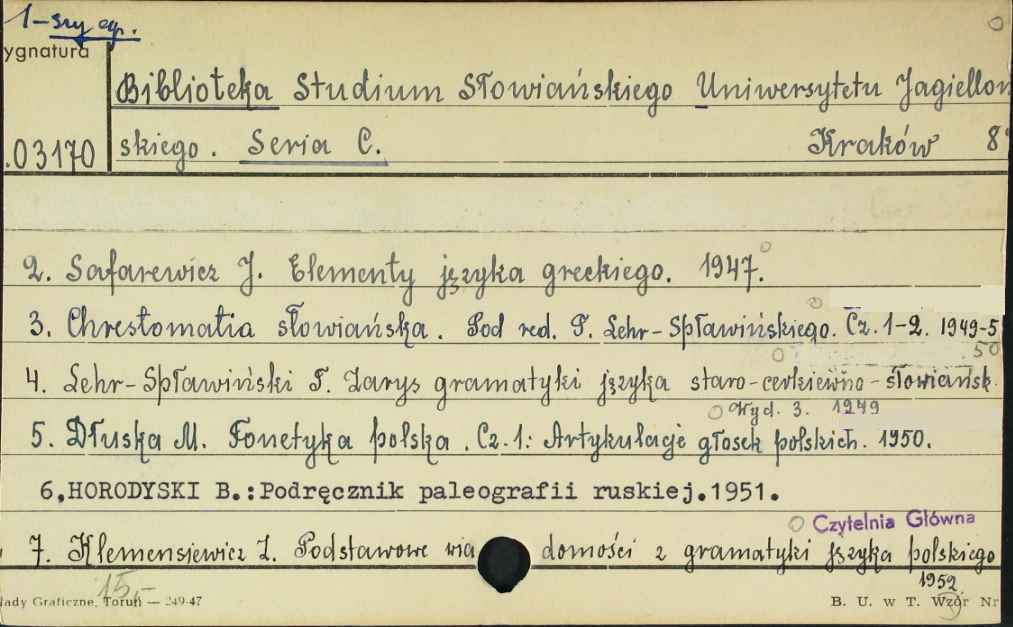 1-szy eg.
ygnatura
Biblioteka Studium Słowiańskiego Uniwersytetu Jagiellon
.03170 skiego. Seria C. Kraków 8°
2. Safarewicz J. Elementy języka greckiego. 1947.
3. Chrestomatia słowiańska. Pod red. T. Lehr-Spławińskiego. Cz. 1-2. 1949-5
50
4. Lehr-Spławiński T. Zarys gramatyki języka staro-cerkiewno-słowiańsk.
Wyd. 3. 1949
5. Dłuska M. Fonetyka polska. Cz. 1: Artykulacje głosek polskich. 1950.
6,HORODYSKI B.:Podręcznik paleografii ruskiej.1951.
Czytelnia Główna
7. Klemensiewicz Z. Podstawowe wia domości z gramatyki języka polskiego
1952.
15,-
łady Graficzne, Toruń — 249-47 B. U. w T. Wzór Nr